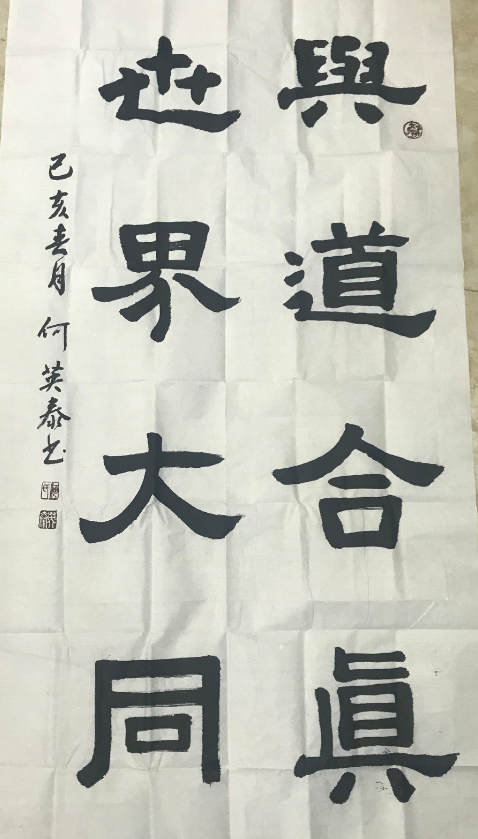 與道合眞
世界大同
己亥春月何英泰书